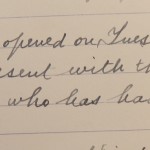 opened on Tues
esent with th
who has ha